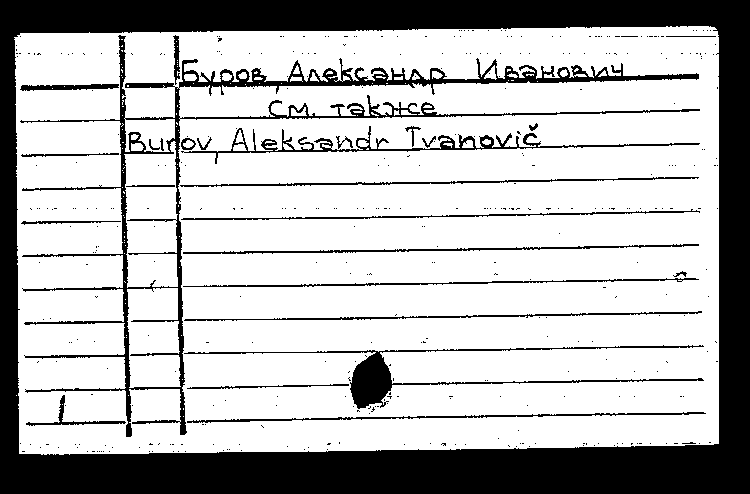 Буров, Александр Иванович
См. также
Burov, Aleksandr Ivanovič